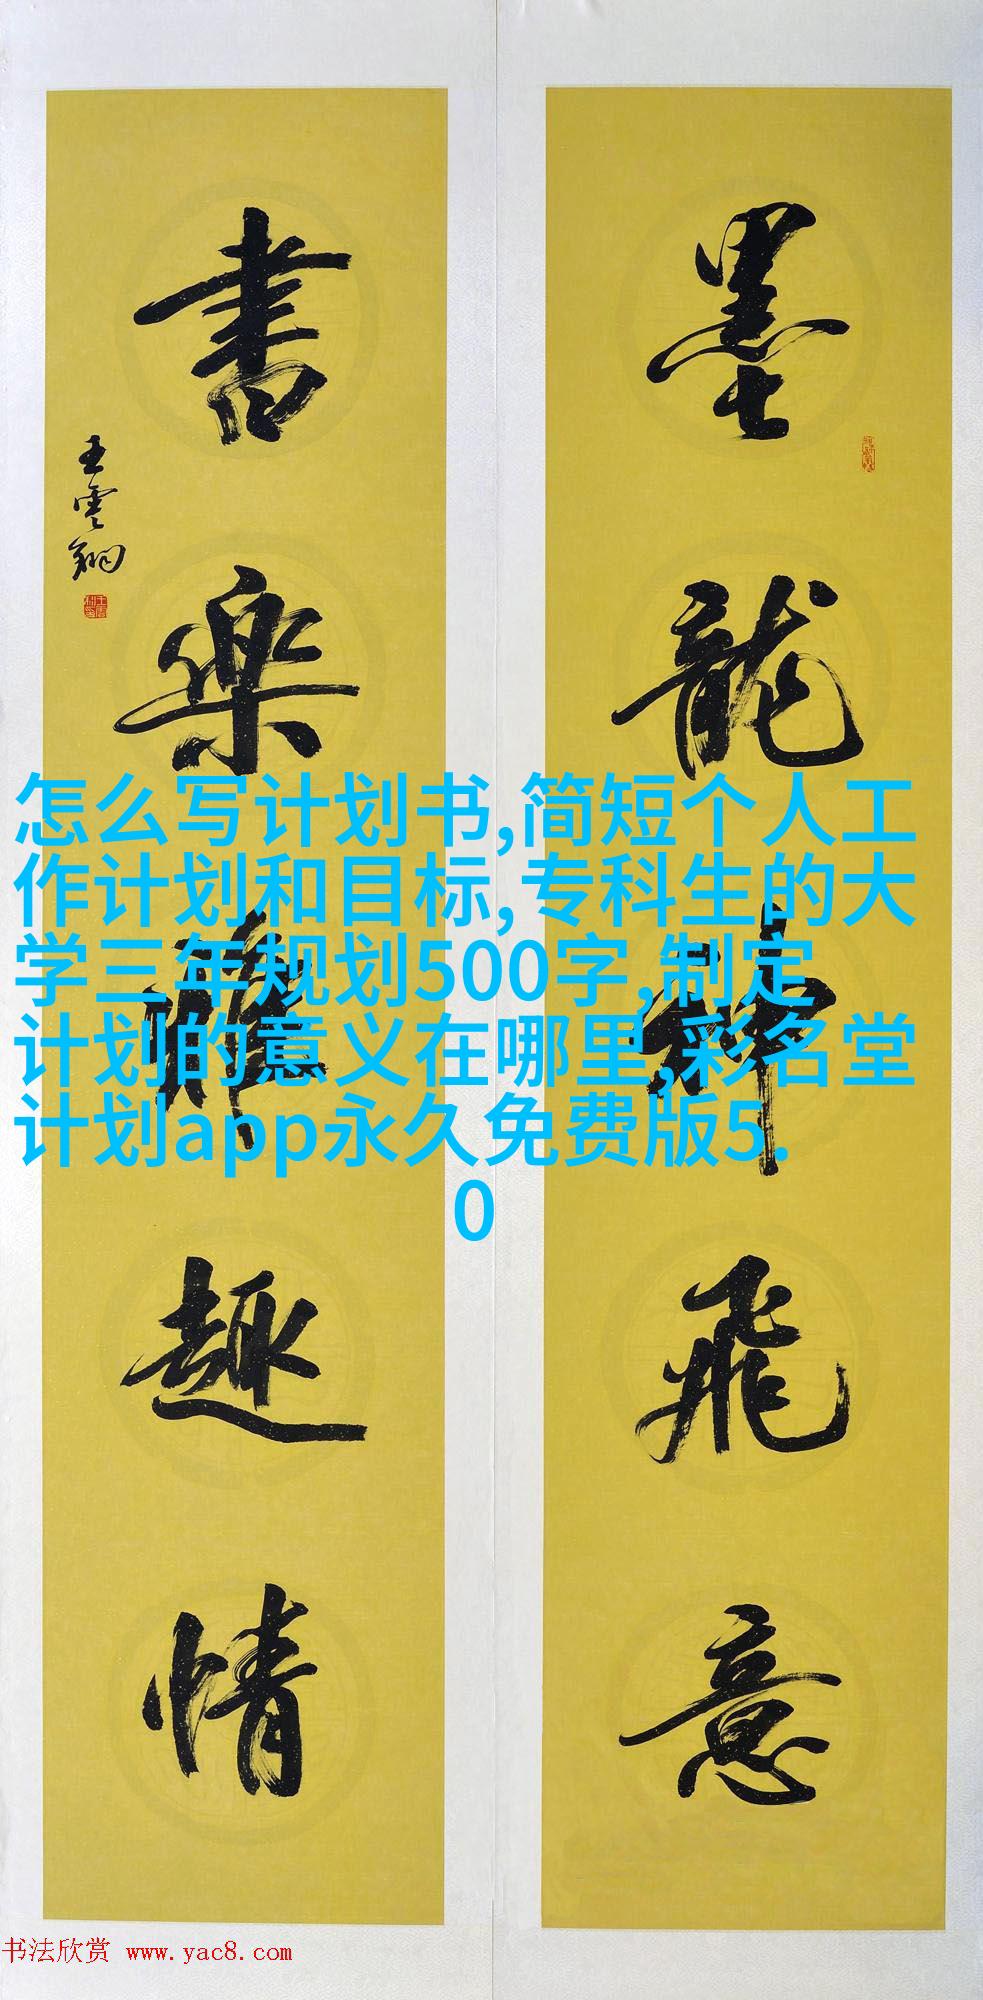 墨龍神飛意
書楽雅趣情
王雲翔
怎么写计划书,简短个人工
作计划和目标,专科生的大
学三年规划500字,制定
计划的意义在哪里,彩名堂
计划app永久免费版5.
0
书法欣赏 www.yac8.com